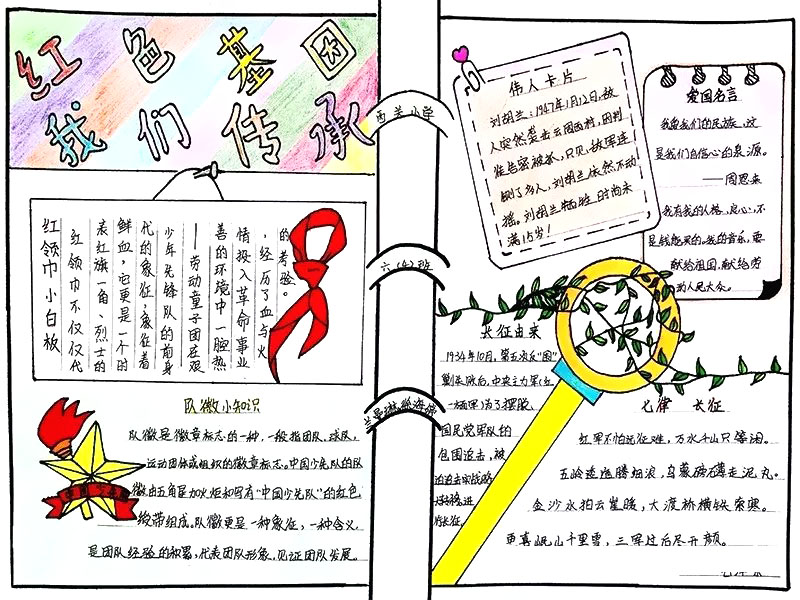 红色基因
我们传承
红领巾小白板
红领巾不仅仅代
表红旗一角、烈士的
鲜血,它更是一个时
代的象征,象征着
少年先锋队的前身
——劳动童子团在艰
苦的环境中一腔热
情投入革命事业
,经历了血与火
的考验。
队徽小知识
队徽是徽章标志的一种,一般指团队、球队、
运动团体或组织的徽章标志。中国少先队的队
徽由五角星加火炬和写有“中国少先队”的红色
绶带组成。队徽更是一种象征,一种含义,
是团队经验的积累,代表团队形象,见证团队发展。
西关小学
六(4)班
伟人卡片
刘胡兰:1947年1月12日,敌
人突然袭击云周西村,因叛
徒告密被抓,只见,敌军连
铡了多人,刘胡兰依然不动
摇。刘胡兰牺牲时尚未
满15岁!
爱国名言
我爱我们的民族,这
是我们自信心的泉源。
——周恩来
我有我的人格、良心,不
是钱能买的。我的音乐,要
献给祖国,献给劳
动人民大众。
长征由来
1934年10月,第五次反“围”
剿失败后,中央主力军红
一方面军为了摆脱
国民党军队的
包围追击,被
迫战略
转移,进
行长征。
七律 长征
红军不怕远征难,万水千山只等闲。
五岭逶迤腾细浪,乌蒙磅礴走泥丸。
金沙水拍云崖暖,大渡桥横铁索寒。
更喜岷山千里雪,三军过后尽开颜。